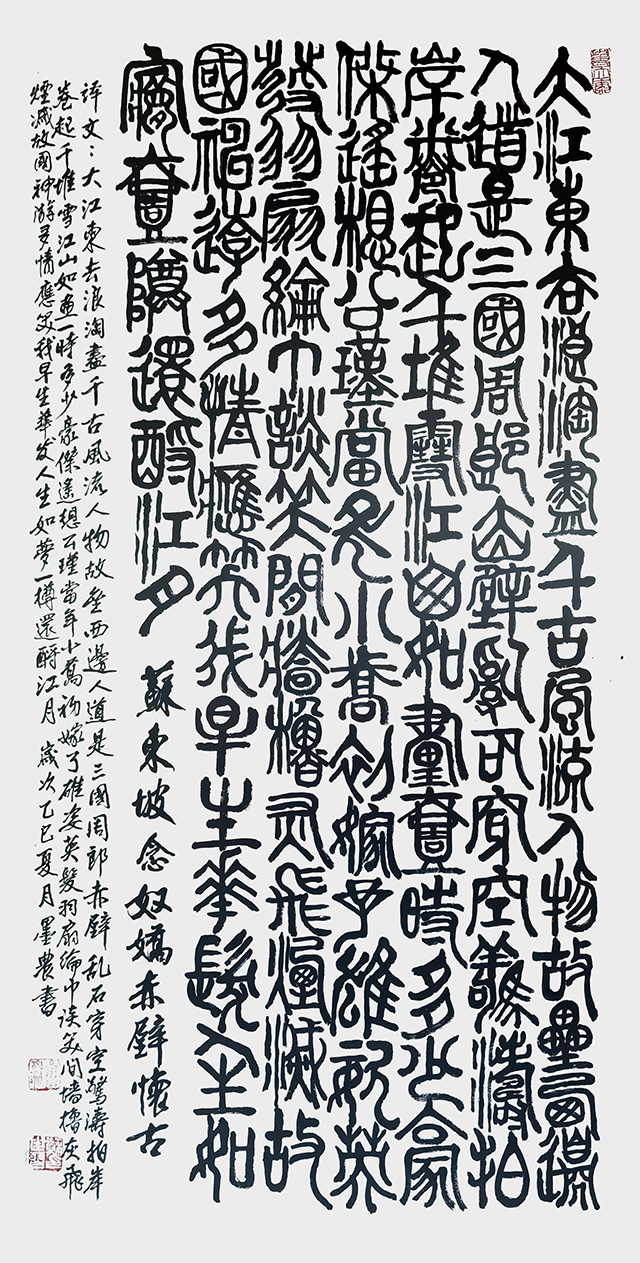 大江東去浪淘盡千古風流人物故壘西邊
人道是三國周郎赤壁亂石穿空驚濤拍
岸卷起千堆雪江山如畫壹時多少豪
傑遙想公瑾當年小喬初嫁了雄姿英
發羽扇綸巾談笑間牆櫓灰飛煙滅故
國神遊多情應笑我早生華髮人生如
夢壹樽還酹江月 蘇東坡念奴嬌赤壁懷古
译文：大江東去浪淘盡千古風流人物故壘西邊人道是三國周郎赤壁乱石穿空驚濤拍岸
卷起千堆雪江山如画一時多少豪傑遙想公瑾當年小喬初嫁了雄姿英發羽扇綸巾谈笑间墙櫓灰飛
煙滅故國神游多情應笑我早生華发人生如夢一樽還酹江月 歲次乙巳夏月墨農書